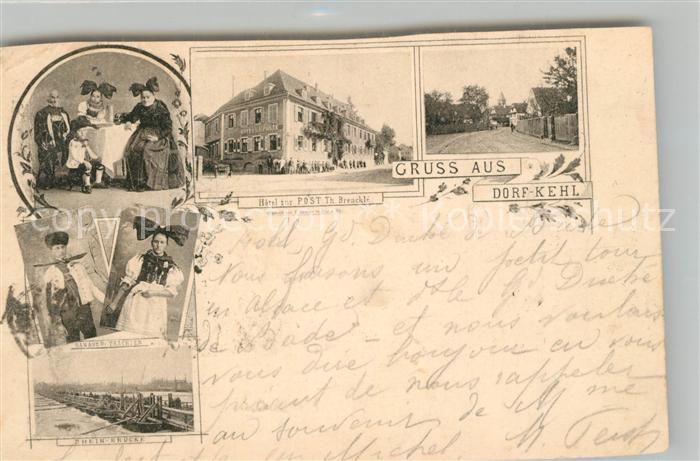 GRUSS AUS
DORF-KEHL
Hôtel zur POST Th. Breuckle.
HANAUER-TRACHTEN
RHEIN-BRÜCKE
copyright kolenperschutz
Gd Duché de
Nous faisons un petit tour
en Alsace et ds le Gd Duché
de Bade – et nous voulons
vous dire bonjour en vous
priant de nous rappeler
au souvenir de M me
Michel. M.